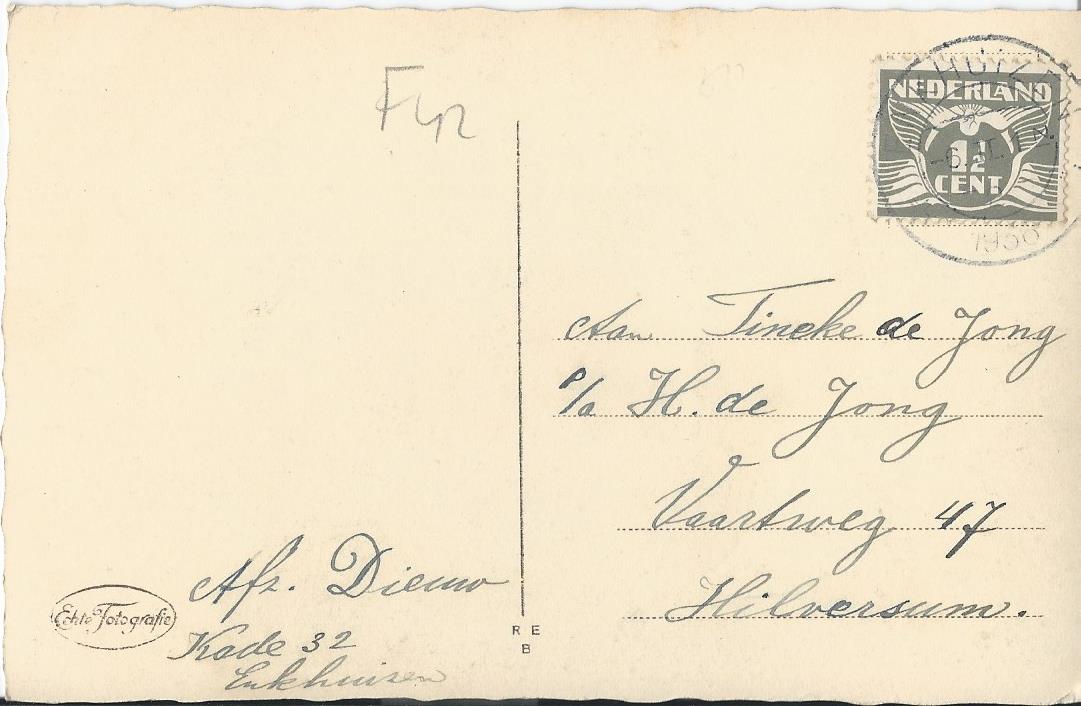 NEDERLAND
1½
CENT
1936
Aan Tineke de Jong
P/a H. de Jong
Vaartsweg 47
Hilversum.
Afz. Dieuw
Kade 32
Enkhuisen
Echte Fotografie
R E
B